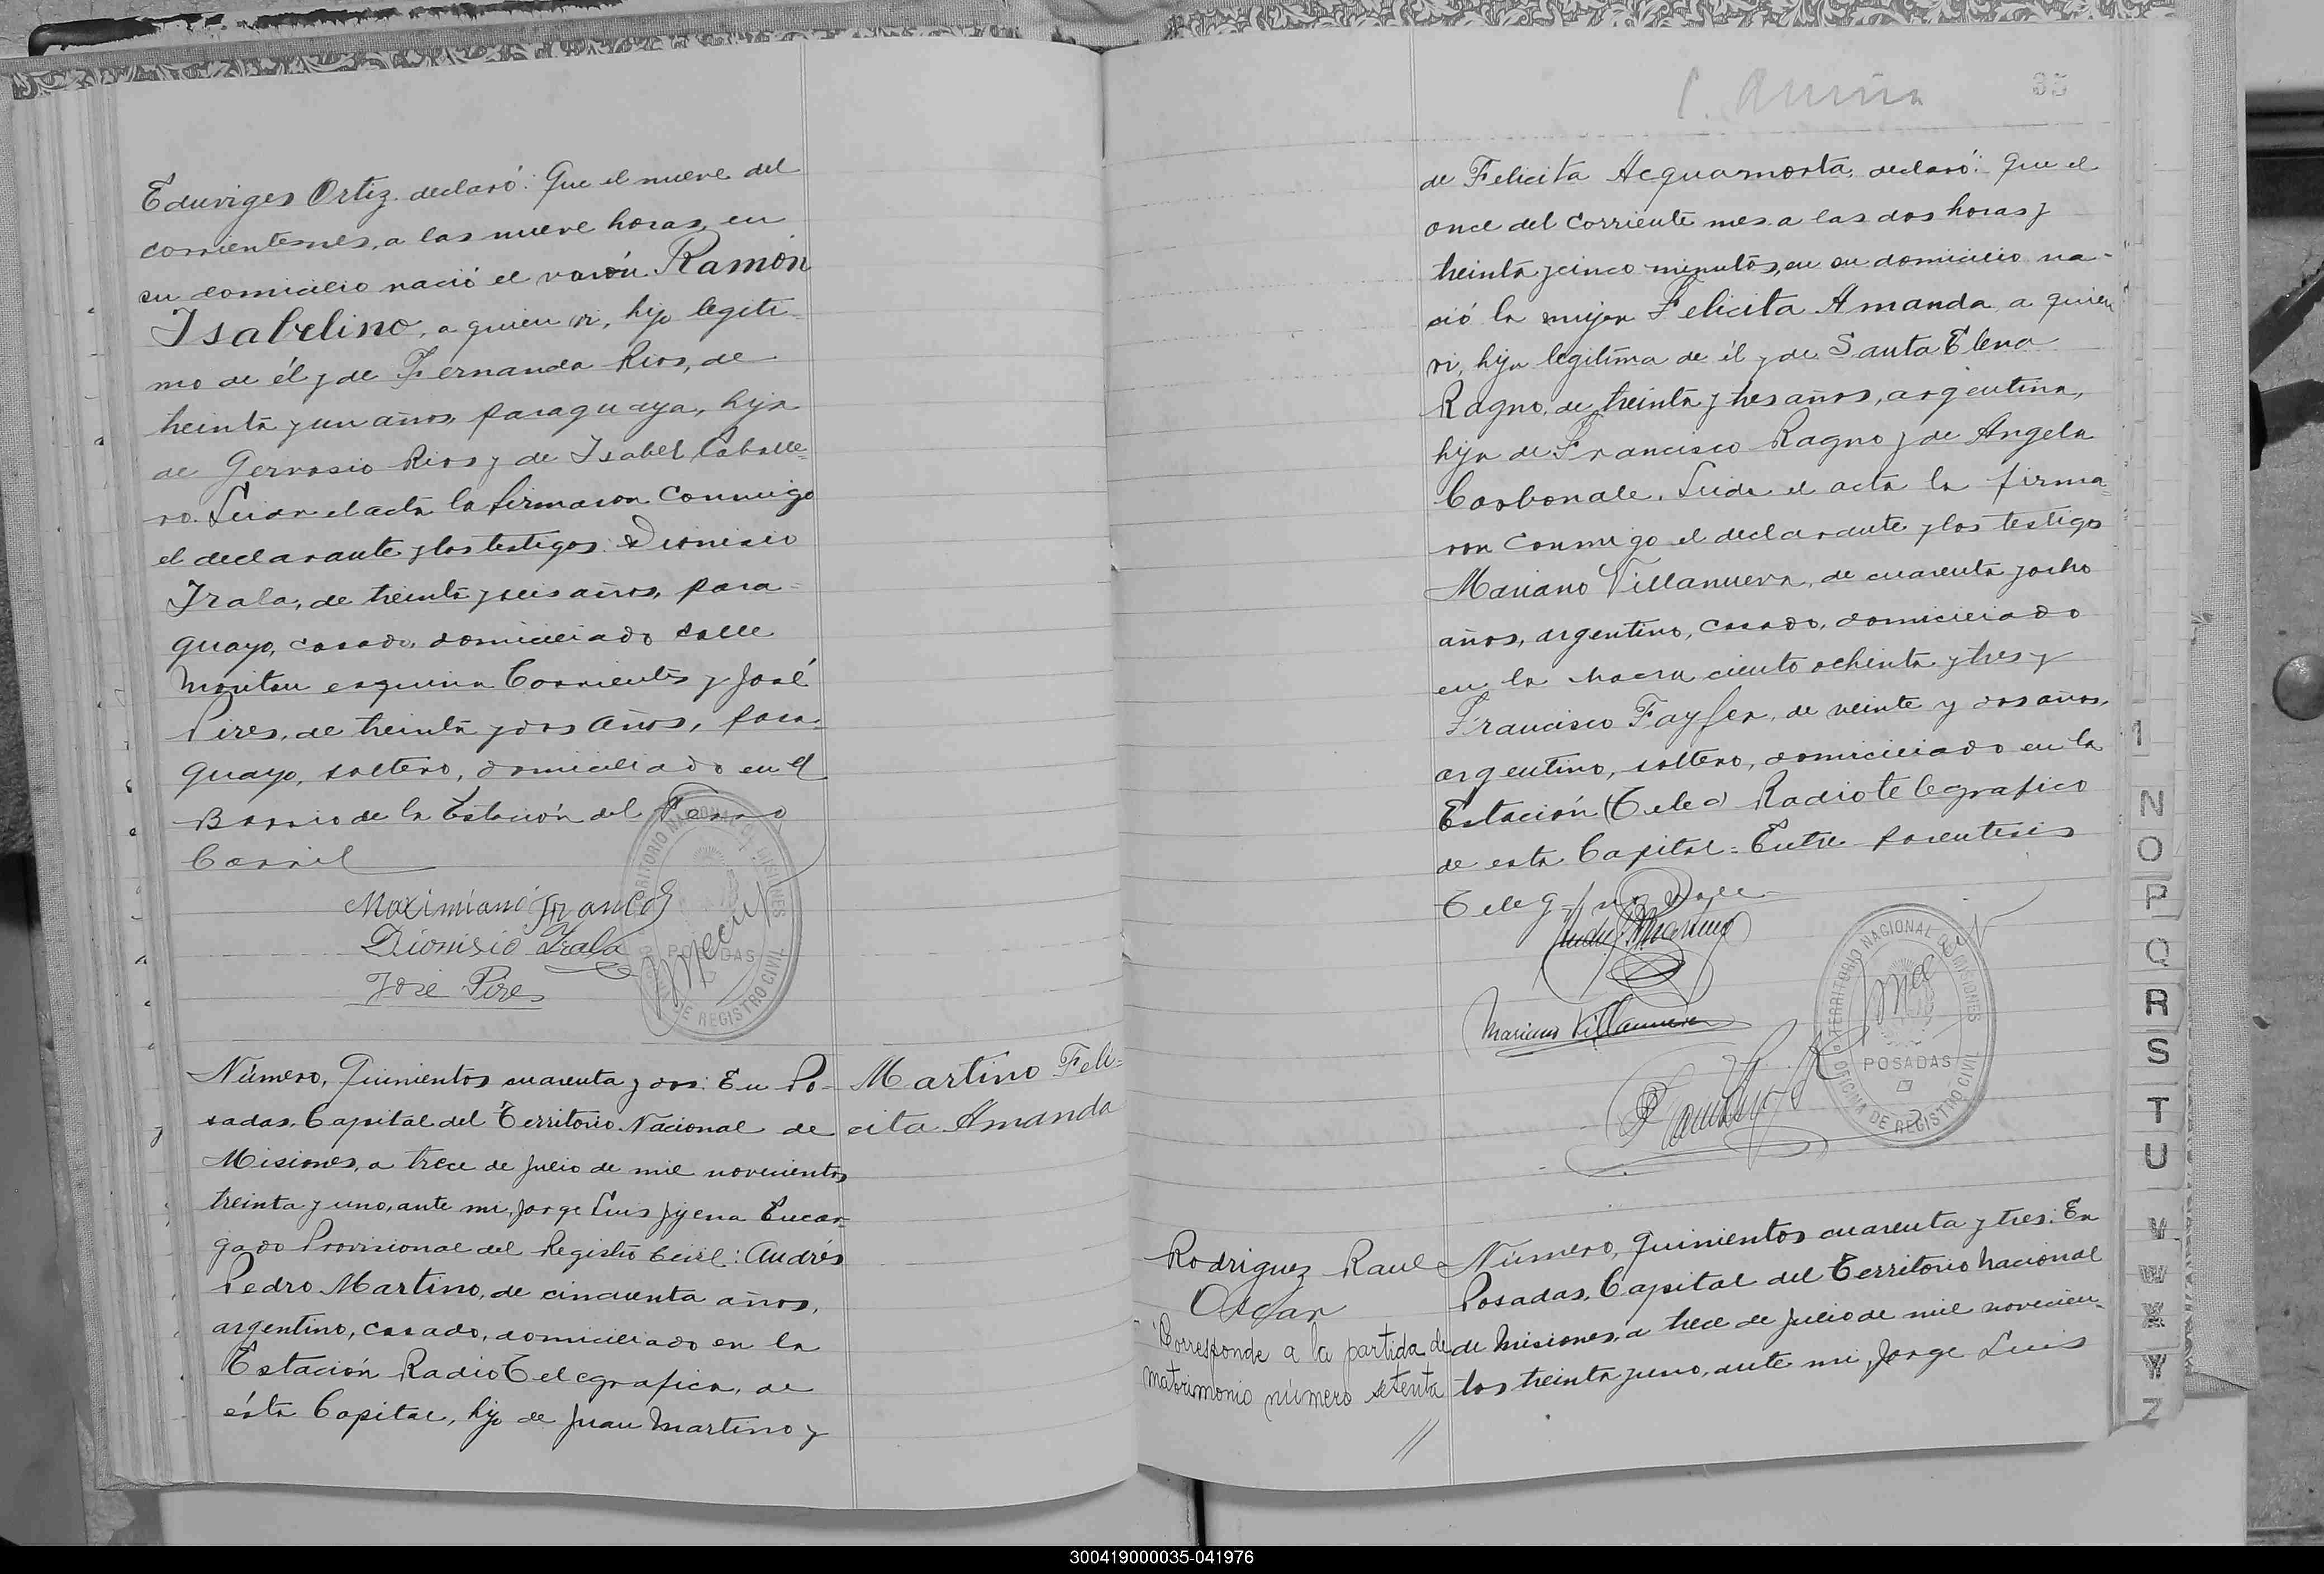 Eduviges Ortiz declaró: Que el nueve del
corriente mes, a las nueve horas, en
su domicilio nació el varón Ramón
Isabelino, a quien vi, hijo legiti-
mo de él y de Fernanda Rios, de
treinta y un años, paraguaya, hija
de Gervasio Rios y de Isabel Caballe-
ro. Leida el acta la firmaron conmigo
el declarante y los testigos: Dionisio
Irala, de treinta y seis años, para-
guayo, casado, domiciliado calle
esquina Corrientes y José
Pires, de treinta y dos años, para-
guayo, soltero, domiciliado en el
Barrio de la Estación del Ferro
Carril
Maximiano Franco
Dionisio Irala
José Pires
TERRITORIO NACIONAL DE MISIONES
POSADAS
OFICINA DE REGISTRO CIVIL
Martino Feli-
cita Amanda
Número, Quinientos cuarenta y dos: En Po-
sadas, Capital del Territorio Nacional de
Misiones, a trece de Julio de mil novecientos
treinta y uno, ante mi, Jorge Luis Encar-
gado Provisional del Registro Civil: Andrés
Pedro Martino, de cincuenta años,
argentino, casado, domiciliado en la
Estación RadioTelegrafica, de
ésta Capital, hijo de Juan Martino y
35
de Felicita Acquamorta, declaró: Que el
once del corriente mes a las dos horas y
treinta y cinco minutos, en su domicilio na-
ció la mujer Felicita Amanda, a quien
vi, hija legitima de él y de Santa Elena
Ragno, de treinta y tres años, argentina,
hija de Francisco Ragno y de Angela
Carbonale. Leida el acta la firma-
ron conmigo el declarante y los testigos
Mariano Villanueva, de cuarenta y ocho
años, argentino, casado, domiciliado
en la chacra ciento ochenta y tres y
Francisco Fayfer, de veinte y dos años,
argentino, soltero, domiciliado en la
Estación (Tele) Radiotelegrafico
de esta Capital = Entre parentesis
Teleg no vale
Mariano Villanueva
TERRITORIO NACIONAL DE MISIONES
POSADAS
OFICINA DE REGISTRO CIVIL
Rodriguez Raul
Oscar
Corresponde a la partida de
matrimonio número setenta
Número, Quinientos cuarenta y tres: En
Posadas, Capital del Territorio Nacional
de Misiones, a trece de Julio de mil novecien-
tos treinta y uno, ante mi, Jorge Luis
N
O
P
Q
R
S
T
U
V
W
X
Y
Z
300419000035-041976